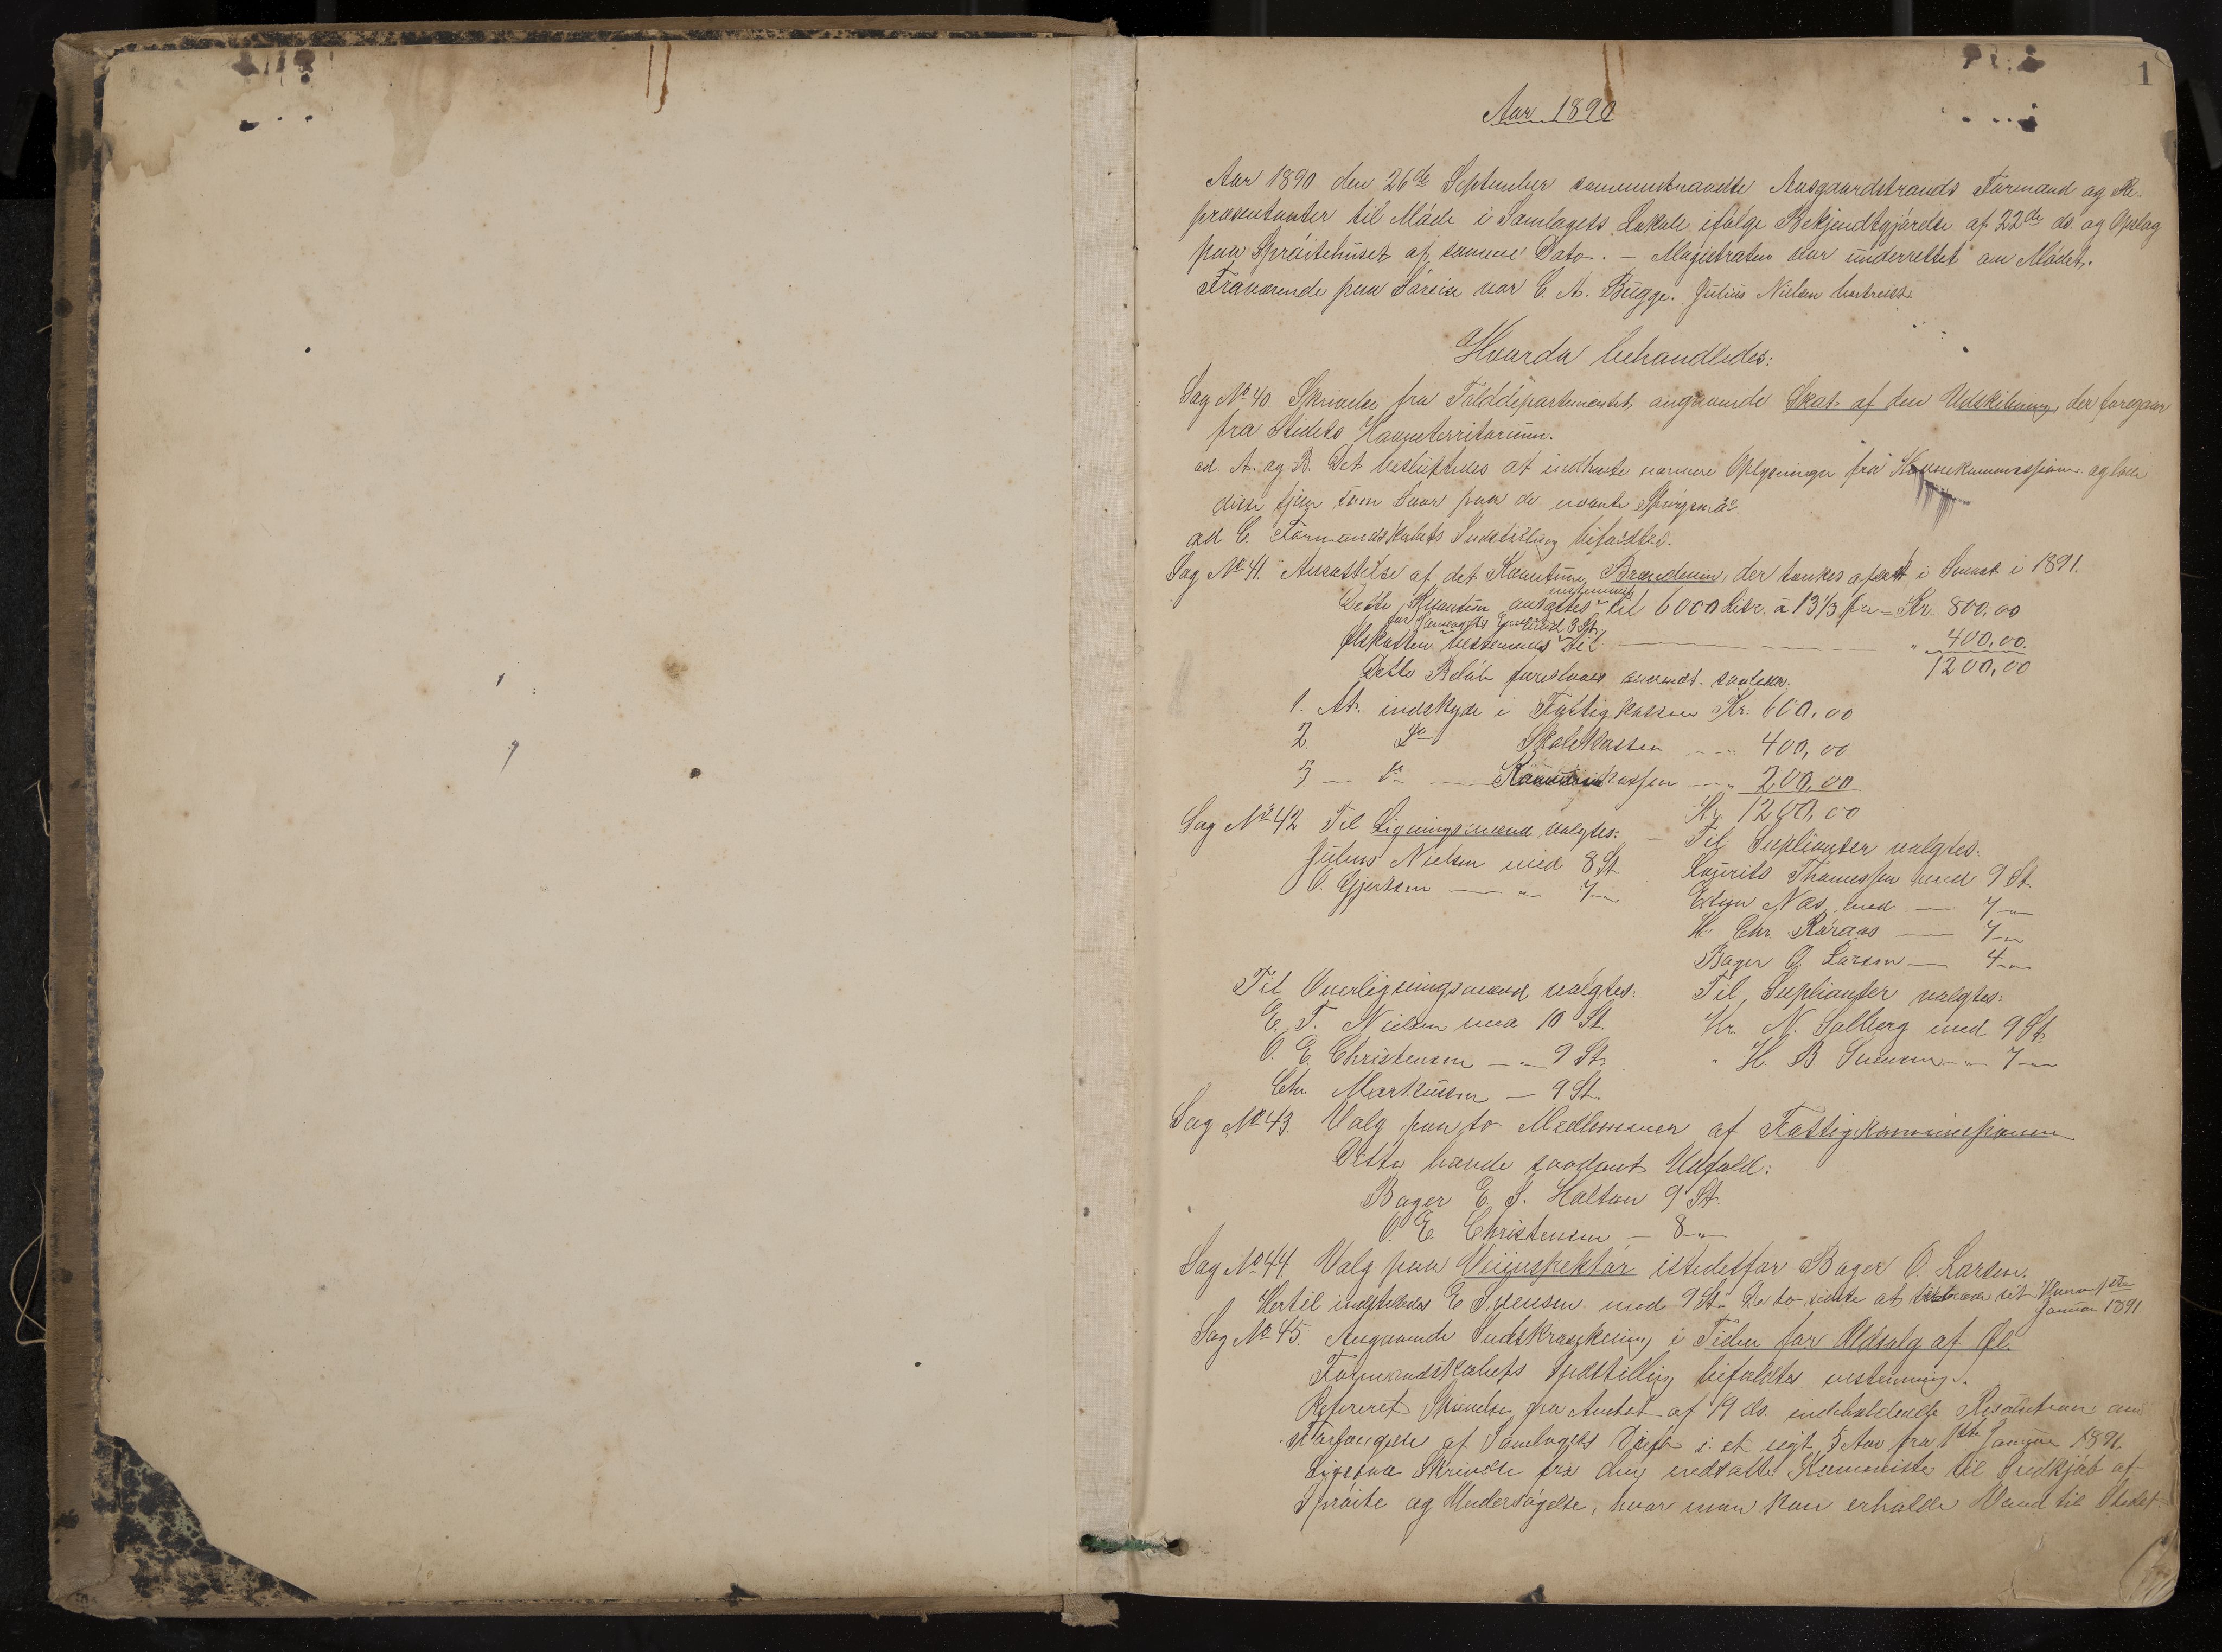 1
Aar 1890
Aar 1890 den 26de September sammentraadte Aasgaardstrands Formand og Re-
præsentanter til Møde i Samlagets Lokale ifølge Bekjendtgjørelse af 22de ds. og Opslag
paa Sprøitehuset af samme Dato. – Magistraten var underrettet om Mødet.
Fraværende paa Søreise var C. A. Bugge. Julius Nielsen bortreist.
Hvorda behandledes:
Sag No 40 Skrivelse fra Tolddepartementet angaaende Skat af den Udskibning, der foregaar
fra Stedets Havneterritorium.
ad. A. og B. Det besluttedes at indhente nærmere Oplysninger fra Havnekommissionen og lade
disse tjene som Svar paa de nævnte Spørgsmål
ad C. Formandskabets Indstilling bifaldtes.
Sag No 41. Ansættelse af det Kvantum Brændevin, der tænkes afsat i Smaat i 1891.
Dette Kvantum ansattes enstemmig til 6000 Liter à 13 1/3 Øre – Kr. 800,00
for Samlagets med 3 St.
Ølskatten bestemmes til " 400,00.
Dette Beløb foreslaaes anvendt saaledes: 1200,00
1. At indskyde i Fattigkassen Kr. 600,00
2. Do Skolekassen – " 400,00
3 – Do – kassen – " 200,00
Kr. 1200,00
Sag No 42 Til Ligningsmænd valgtes: – Til Suplianter valgtes:
Julius Nielsen med 8 St. Lauritz Thomessen med 9 St
O. Gjertsen – " 7 – " Næs med – 7 – "
H. Chr. Røraas – 7 – "
Bager O. Larsen – 4 – "
Til Overligningsmænd valgtes: Til Suplianter valgtes:
E. T. Nielsen med 10 St. Hr. N. Solberg med 9 St.
O. E. Christensen – " – 9 St. " H. B. – " 7 – "
Chr Markussen – 9 St.
Sag No 43. Valg paa to Medlemmer af Fattigkommissionen
Dette havde saadant Udfald:
Bager E. S. Holtan 9 St.
O. E. Christensen – 8 – "
Sag No 44. Valg paa Veiinspektør istedetfor Bager O. Larsen.
Hertil indstilledes E Svensen med 9 St. De to sidste at tiltræde sit Hverv 1ste
Januar 1891
Sag No 45. Angaaende Indskrænkning i Tiden for Udsalg af Øl.
Formandskabets Indstilling bifaldtes enstemmig.
Refereret Skrivelse fra Amtet af 19 ds. indeholdende Resolution om
Forlængelse af Samlagets Drift i et nyt 5 Aar fra 1ste Januar 1891.
Ligesaa Skrivelse fra den nedsatte Komite til Indkjøb af
Sprøite og Undersøgelse, hvor man kan erholde Vand til Stedet